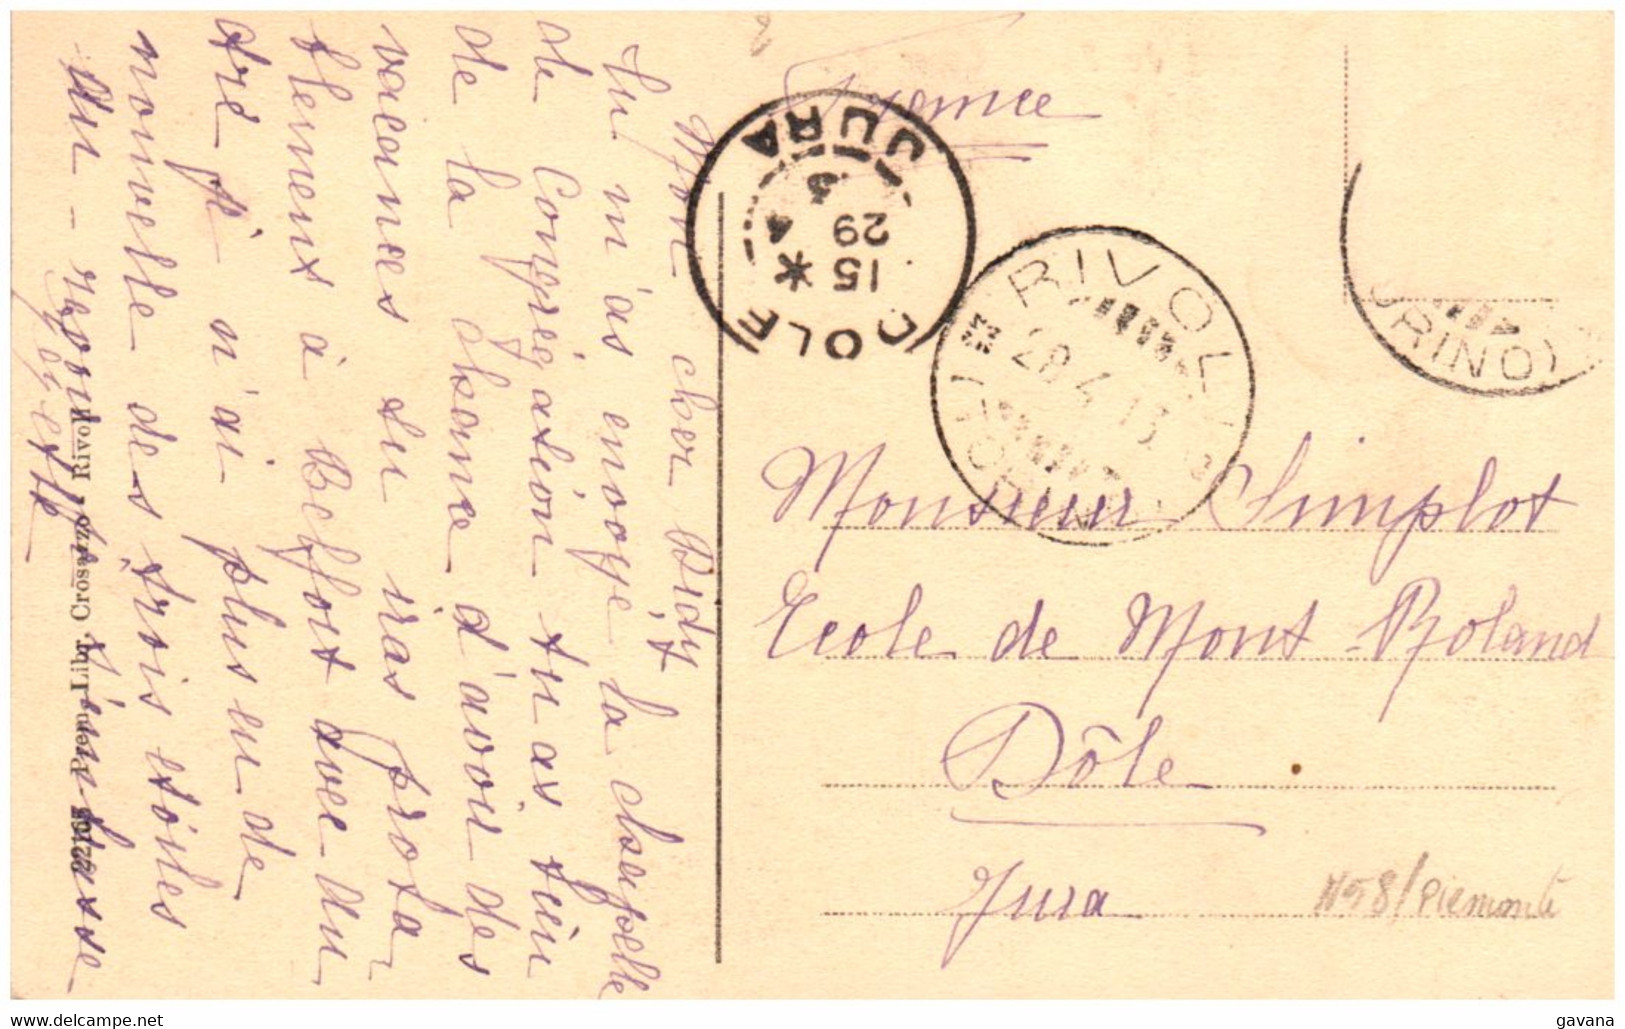 Mon cher Didy
tu m'as envoyé la chapelle
de Congrégation tu as bien
de la chance d'avoir des
vacances tu iras proba
blement à Belfort avec du
dré je n'ai plus eu de
nouvelle des trois étoiles
au - revoir
gyette
20,22105 - Prem. Libr. Crosazzo, Rivoli
France
DOLE
15 *
29 4
13
JURA
RIVOLI
28.4.13
(TORINO)
(TORINO)
Monsieur Simplot
Ecole de Mont-Roland
Dôle
Jura
N98/Piemonte
delcampe.net
gavana